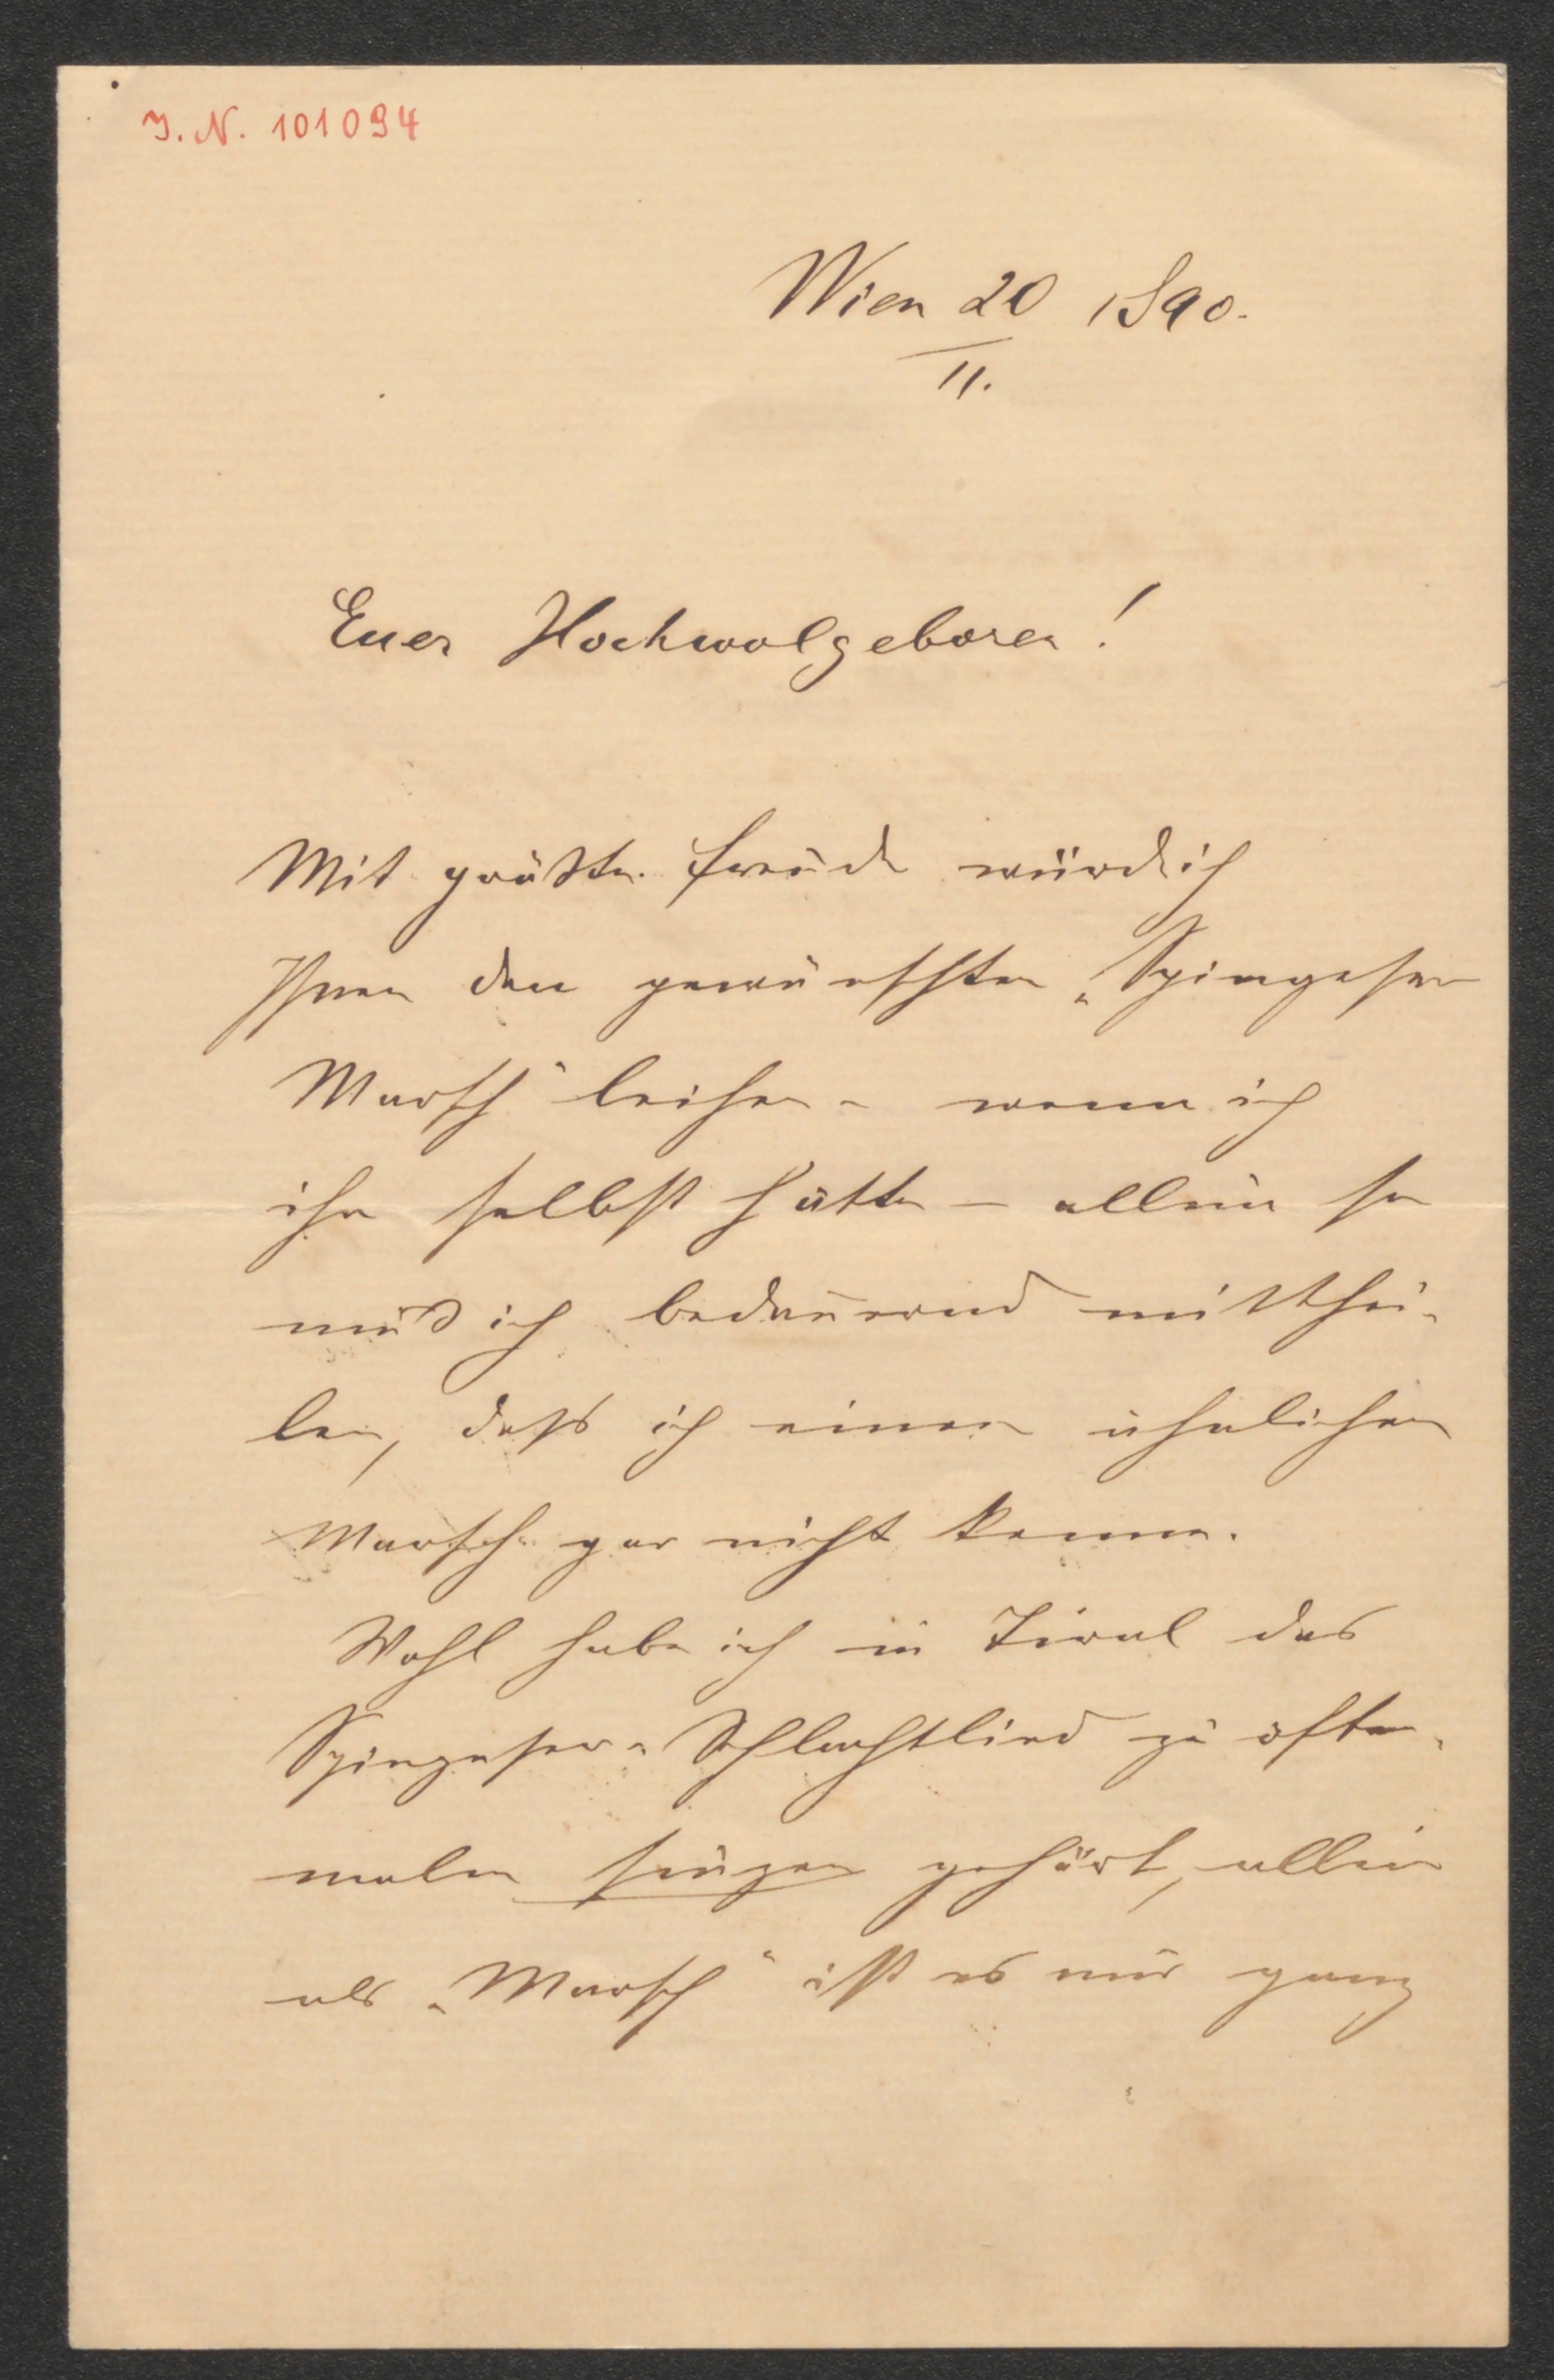 J. N. 101094
Wien 20 1890.
II.
Euer Hochwolgeboren!
Mit größter Freude würde ich
Ihnen den gewünschten „Spingeser
Marsch“ leihen – wenn ich
ihn selbst hätte – allein so
muß ich bedauernd mitthei-
len, dass ich einen ähnlichen
Marsch gar nicht kenne.
Wohl habe ich in Tirol das
Spingeser-Schlachtlied zu öfter-
malen singen gehört, allein
als „Marsch“ ist es mir ganz